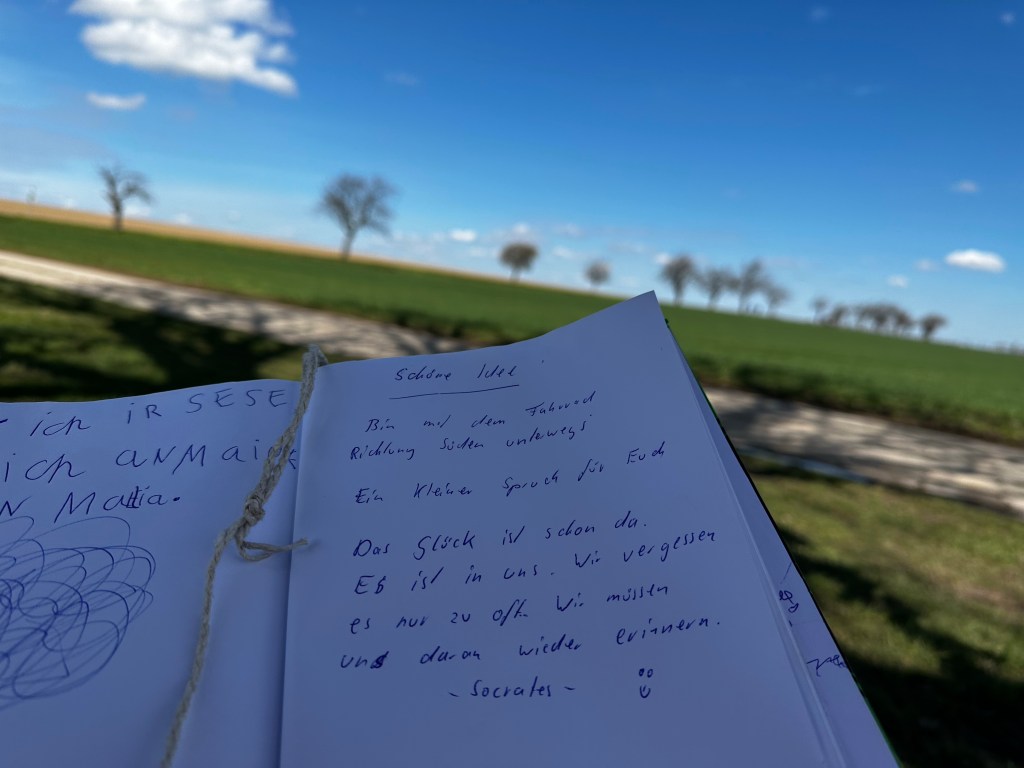 ich iR SESE
ich ANMAiK
N Mattia.
Schöne Idee
Bin mit dem Fahrrad
Richtung Süden unterwegs
Ein kleiner Spruch für Euch
Das Glück ist schon da.
Eß ist in uns. Wir vergessen
es nur zu oft. Wir müssen
uns daran wieder erinnern.
- Socrates -